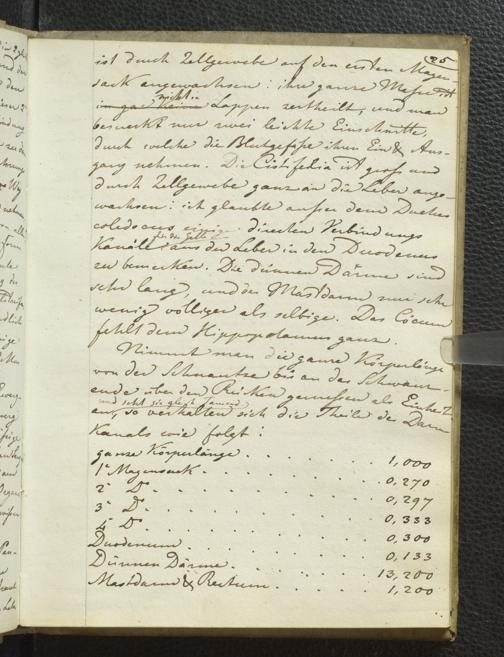 25
ist durch Zellgewebe auf den ersten Magen-
sack angewachsen: ihre ganze Masse ist
nicht in
in gar keine Lappen zertheilt, und man
bemerkt nur zwei leichte Einschnitte,
durch welche die Blutgefäße ihren Ein & Aus-
gang nehmen. Die ist groß und
durch Zellgewebe ganz an die Leber ange-
wachsen: ich glaubte außer dem Ductus
coledocus einige directen Verbindungs
Kanäle aus der Leber in den Duodenus
zu bemerken. Die dünnen Därme sind
sehr lang, und der Mastdarm nur sehr
wenig völliger als selbige. Das Cöcum
fehlt dem Hippopotamus ganz.
Nimmt man die ganze Körperlänge
von der Schnautze bis an das Schwanz-
ende über den Rücken gemessen als Einheit
und setzt sie gleich Tausend
an, so verhalten sich die Theile des Darm
Kanals wie folgt:
ganze Körperlänge . . . . . 1,000
1r Magensack . . . . . 0,270
2r Do . . . . . 0,297
3r Do . . . . . 0,333
4r Do . . . . . 0,300
Duodenum . . . . . 0,133
Dünnen Därme . . . . . 13,200
Mastdarm & Rectum . . . . . 1,200